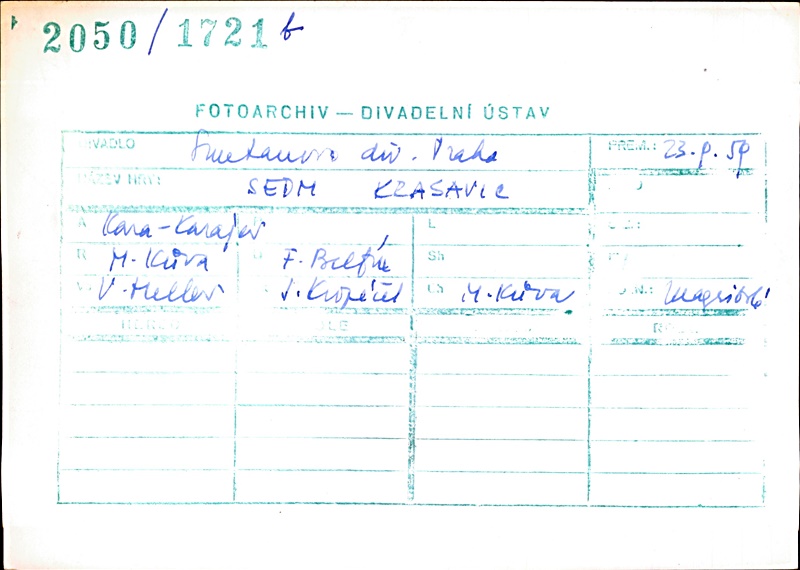 2050/1721 b
FOTOARCHIV — DIVADELNÍ ÚSTAV
DIVADLO Smetanovo div. Praha PREM.: 23.9.59
NÁZEV HRY: SEDM KRASAVIC
A Kara-Karajev L
R M. Kůra F. Bělfín Sh
V. Heller J. Kropáček Ch M. Kůra